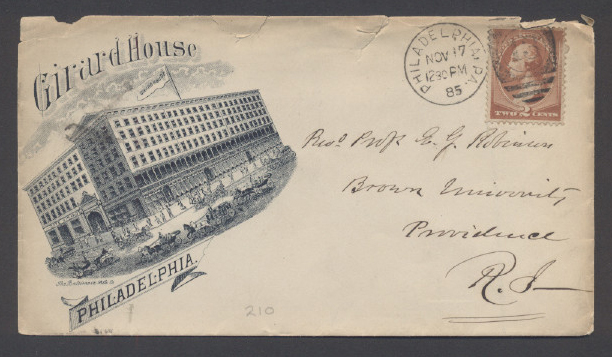 Girard House
PHILADELPHIA.
PHILADELPHIA PA.
NOV 17
1230 PM
85
TWO CENTS
Revd Prof E. G. Robinson
Brown University
Providence
R. I.
210